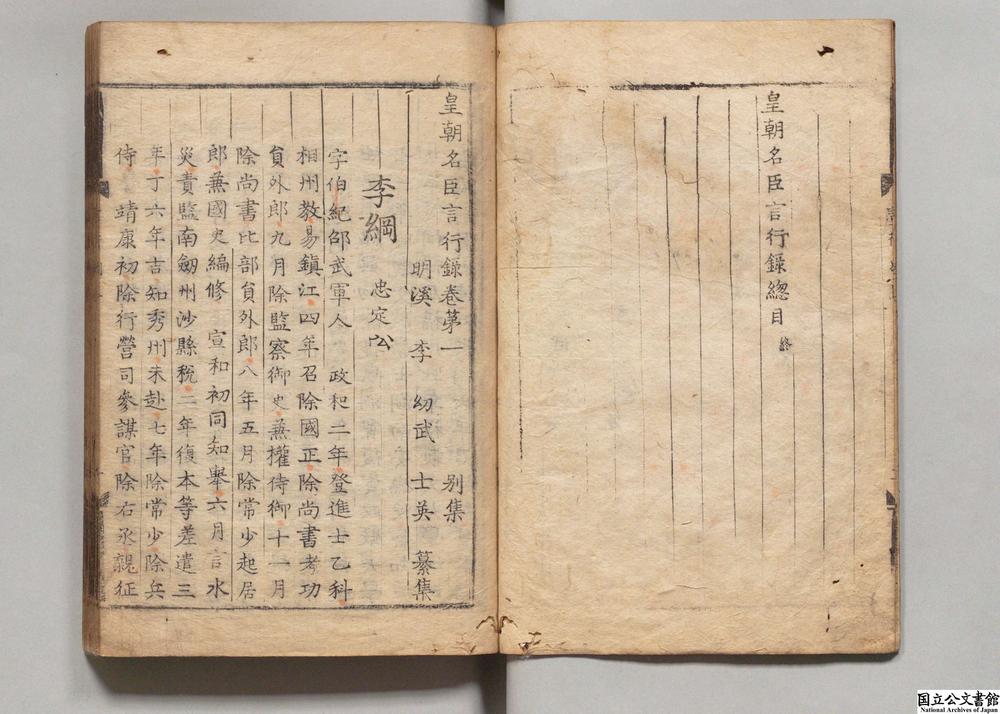 皇朝名臣言行錄總目 終
皇朝名臣言行錄卷第一 別集
明溪 李 幼武 士英 纂集
李綱 忠定公
字伯紀邵武軍人 政和二年登進士乙科
相州敎易鎭江四年召除國正除尚書考功
員外郎九月除監察御史兼權侍御十一月
除尚書比部員外郎八年五月除常少起居
郎兼國史編修 宣和初同知擧六月言水
災責監南劒州沙縣稅二年復本等差遣三
年丁六年吉知秀州未赴七年除常少除兵
侍 靖康初除行營司參謀官除右丞親征
国立公文書館
National Archives of Japan